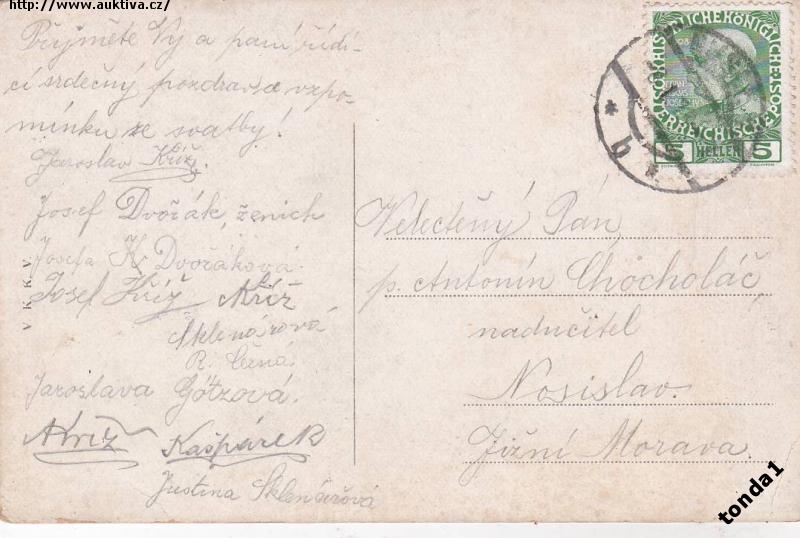 http://www.auktiva.cz/
Přijměte Vy a paní řídí-
cí srdečný pozdrav a vzpo-
mínku ze svatby!
Jaroslav Kříž.
Josef Dvořák, ženich
Josefa K Dvořáková.
Josef Kříž AKříž
Sklenářová
R. Černá.
Jaroslava Götzová.
AKříž Kašpárek
Justina Sklenářová
V. K. K. V.
HELLER
5 5
Velectěný Pán
p. Antonín Chocholáč
nadučitel
Nosislav.
Jižní Morava.
tonda1